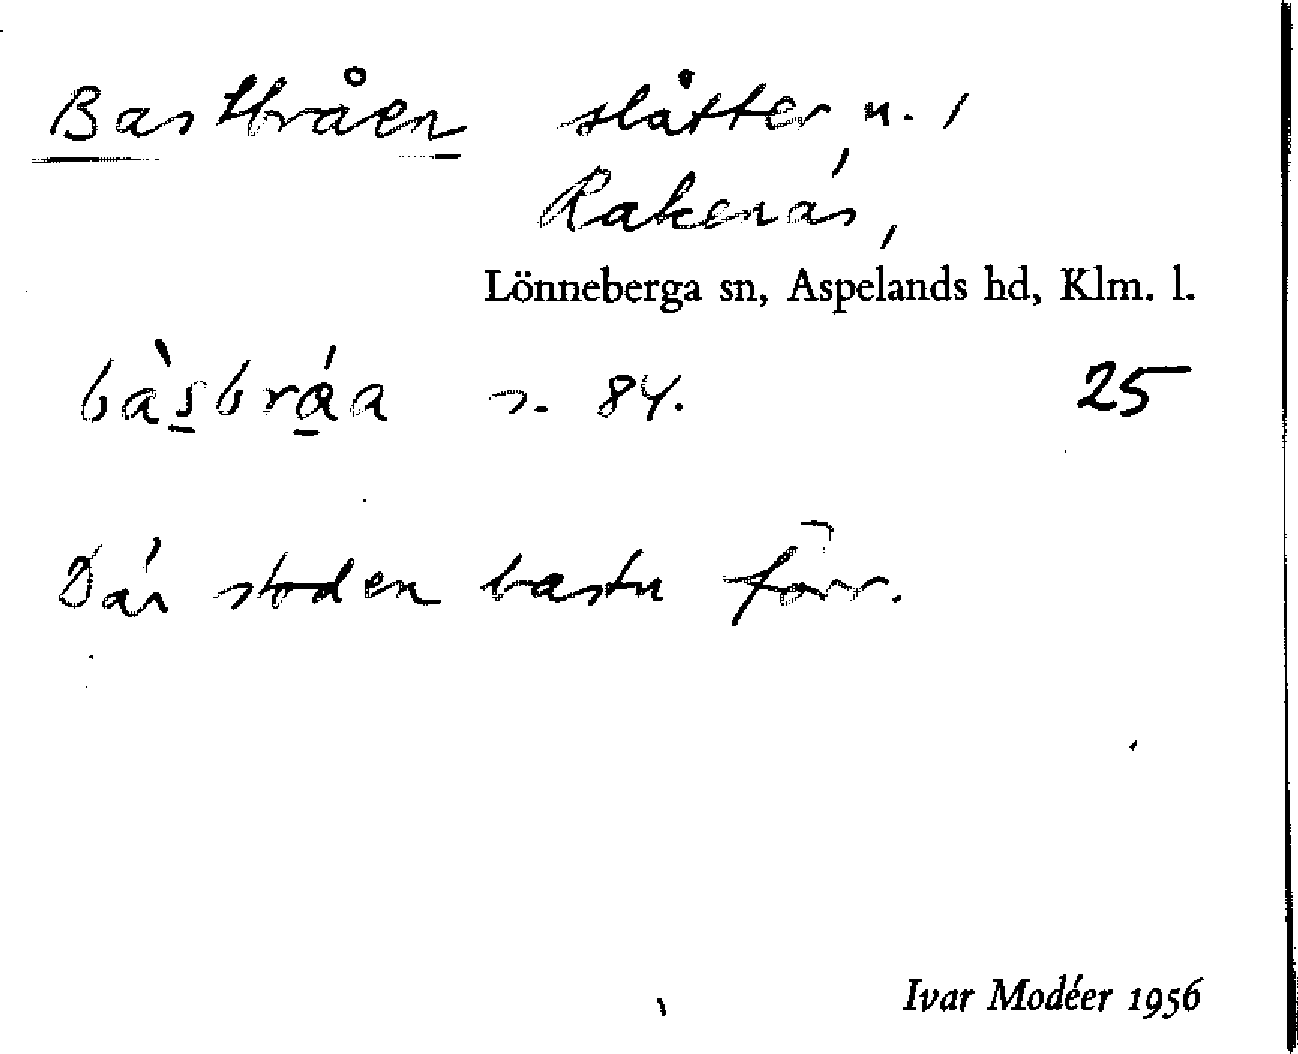 Bastbråen slåtter, n. 1
Rakenäs,
Lönneberga sn, Aspelands hd, Klm. l.
bàsbráa s. 84. 25
Där stod en bastu förr.
Ivar Modéer 1956